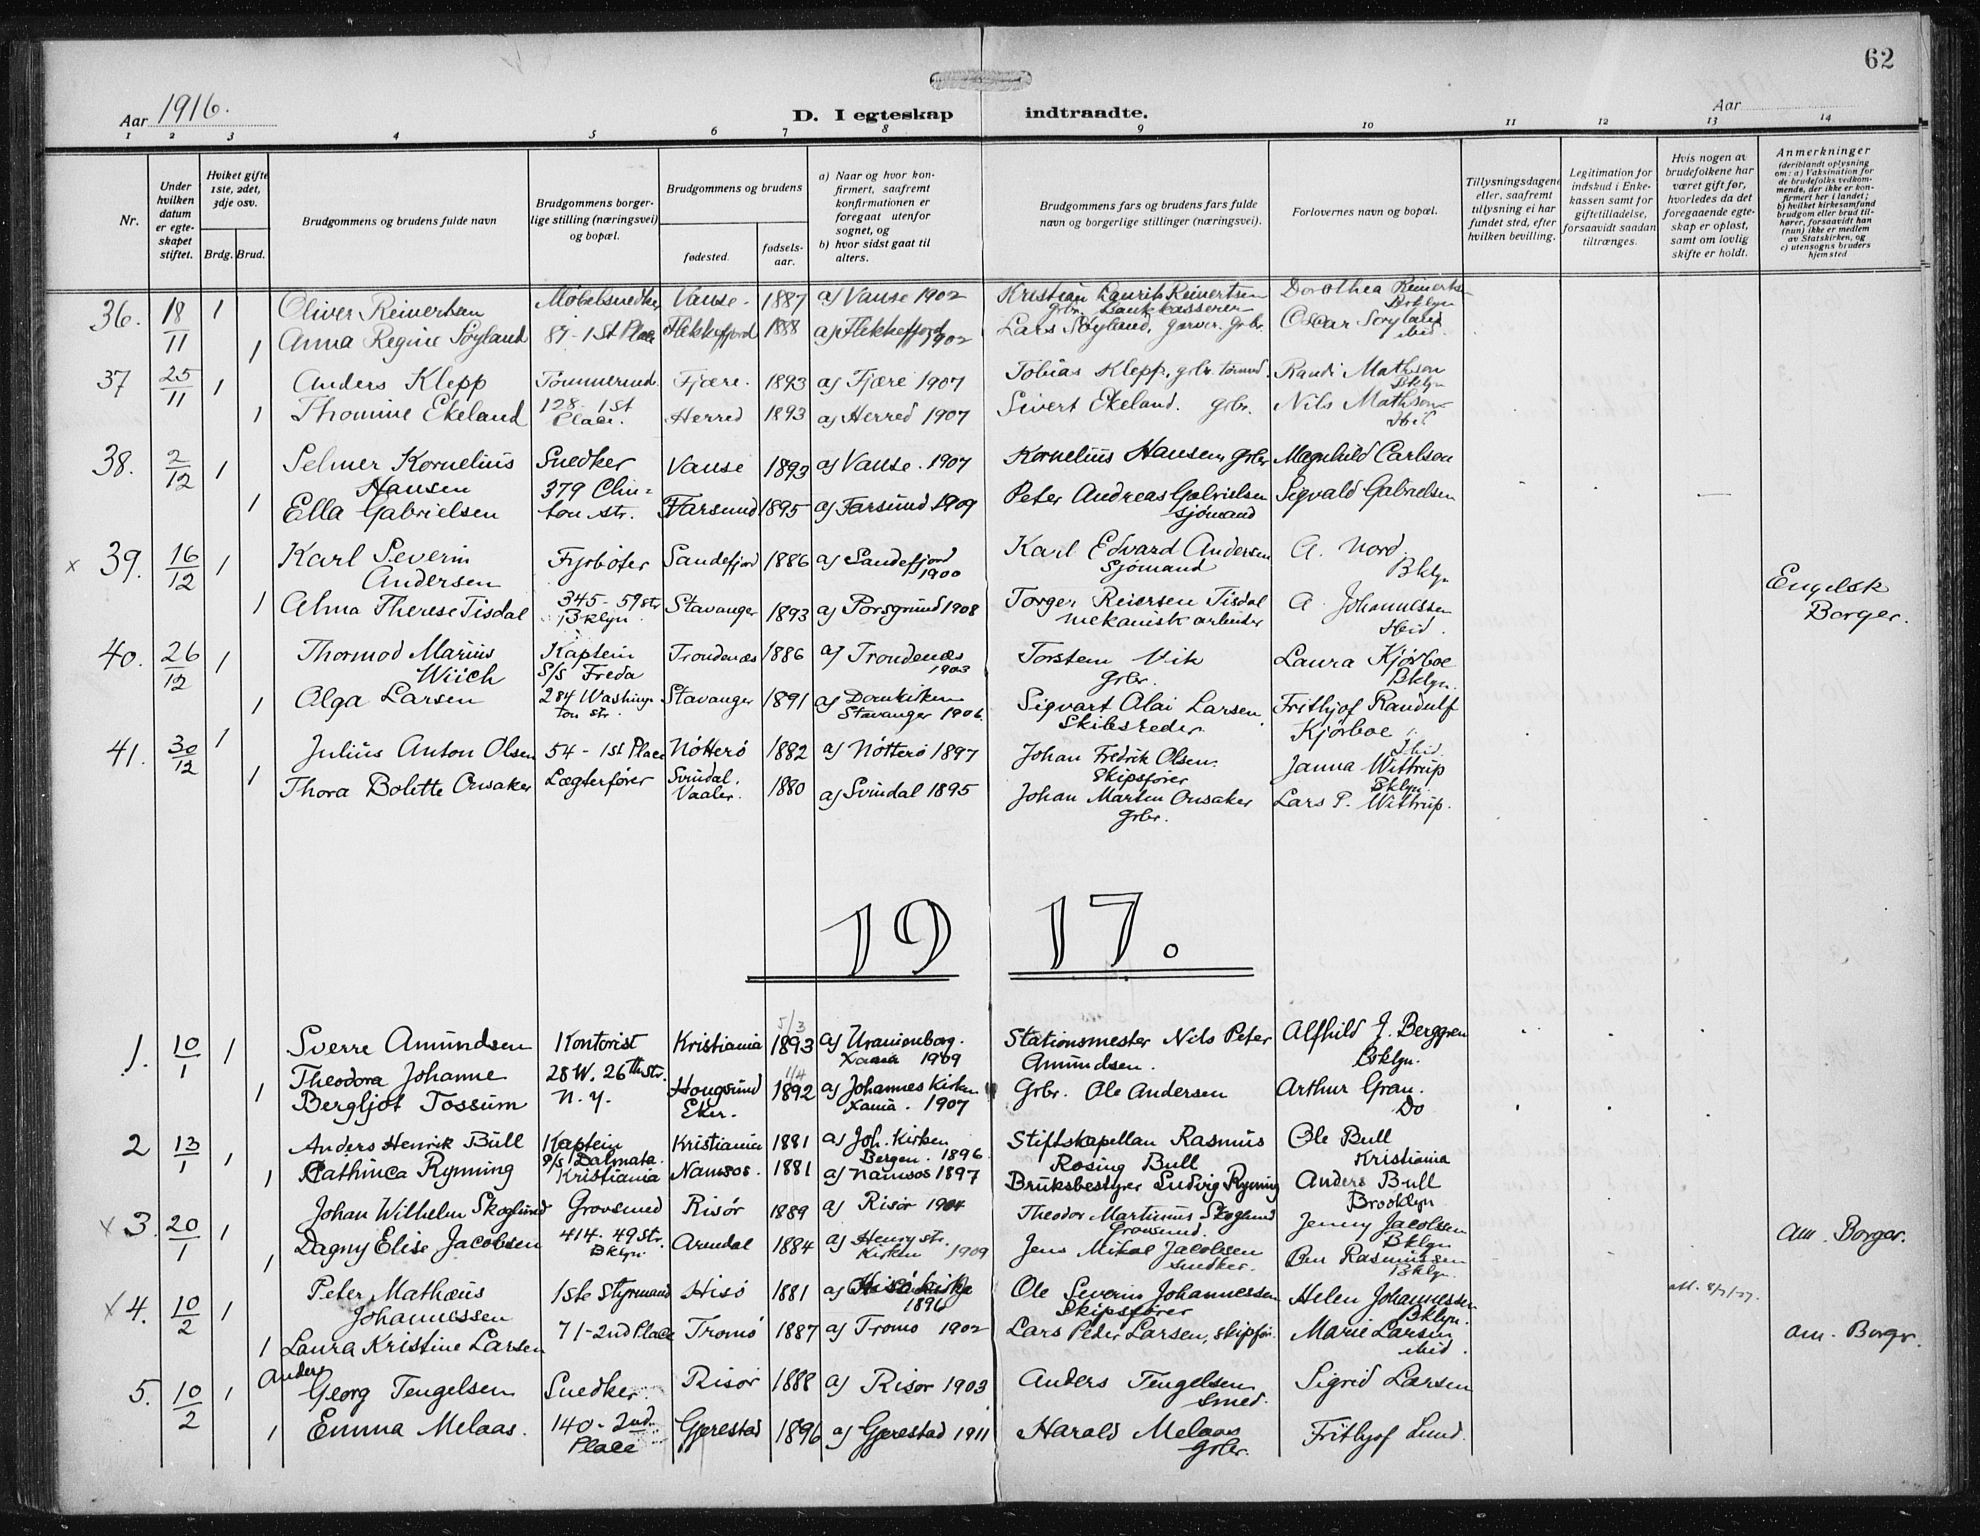 62
Aar 1916.
D. I egteskap indtraadte.
Aar
1 2 3 4 5 6 7 8 9 10 11 12 13 14
Nr.
Under hvilken datum er egteskapet stiftet.
Hviket gifte 1ste, 2det, 3dje osv.
Brdg. Brud.
Brudgommens og brudens fulde navn
Brudgommens borgerlige stilling (næringsvei) og bopæl.
Brudgommens og brudens
fødested.
fødselsaar.
a) Naar og hvor konfirmert, saafremt konfirmationen er foregaat utenfor sognet, og
b) hvor sidst gaat til alters.
Brudgommens fars og brudens fars fulde navn og borgerlige stillinger (næringsvei).
Forlovernes navn og bopæl.
Tillysningsdagene eller, saafremt tillysning ei har fundet sted, efter hvilken bevilling.
Legitimation for indskud i Enkekassen samt for giftetilladelse, forsaavidt saadan tiltrænges.
Hvis nogen av brudefolkene har været gift før, hvorledes da det foregaaende egteskap er opløst, samt om lovlig skifte er holdt.
Anmerkninger
(deriblandt oplysning om: a) Vaksination for de brudefolks vedkommende, der ikke er konfirmert her i landet; b) hvilket kirkesamfund brudgom eller brud tilhører, forsaavidt han (hun) ikke er medlem av Statskirken, og c) utensogns bruders hjemsted
36. 18/11 1 Oliver Reinertsen Møbelsnedker Vanse. 1887 a) Vanse 1902 Kristian Laurits Reinertsen grbr. Bankkasserer Dorothea Reinertsen Bklyn
1 Anna Regine Søyland 87 - 1st Place Flekkefjord 1888 a) Flekkefjord 1902 Lars Søyland, garver. grbr. Oscar Søyland ibid.
37 25/11 1 Anders Klepp Tømmermd. Fjære. 1893 a) Fjære 1907 Tobias Klepp, grbr. tømmd. Randi Mathson Bklyn
1 Thomine Ekeland 128. 1st Place. Herred 1893 a) Herred 1907 Sivert Ekeland. grbr. Nils Mathson Ibid.
38. 2/12 1 Selmer Kornelius Hansen Snedker Vanse 1893 a) Vanse. 1907 Kornelius Hansen grbr Magnhild Carlson
1 Ella Gabrielsen 379 Clinton str. Farsund 1895 a) Farsund 1909 Peter Andreas Gabrielsen sjømand Sigvald Gabrielsen
x 39. 16/12 1 Karl Severin Andersen Fyrbøter Sandefjord 1886 a) Sandefjord 1900 Karl Edvard Andersen Sjømand A. Nord. Bklyn
1 Alma Therese Tisdal 345 - 59 str Bklyn. Stavanger 1893 a) Porsgrund 1908 Torger Reiersen Tisdal mekanisk arbeider A. Johannessen Ibid. Engelsk Borger.
40. 26/12 1 Thormod Marius Wiich Kaptein S/S Freda Trondenæs 1886 a) Trondenæs 1903 Torstein Vik Grbr. Laura Kjørboe Bklyn.
1 Olga Larsen 284 Washington str. Stavanger 1891 a) Domkirken Stavanger 1906. Sigvart Olai Larsen Skibsreder Frithjof Randulf Kjørboe Ibid.
41. 30/12 1 Julius Anton Olsen 54 - 1st Place Nøtterø 1882 a) Nøtterø 1897 Johan Fredrik Olsen. Skipsfører Janna Wittrup Bklyn.
1 Thora Bolette Onsaker Lægterfører Svindal, Vaaler. 1880 a) Svindal 1895 Johan Martin Onsaker Grbr. Lars P. Wittrup.
19 17.
1. 10/1 1 Sverre Amundsen Kontorist Kristiania 5/3 1893 a) Uranienborg. Xania 1909 Stationsmester Nils Peter Amundsen. Alfhild J. Berggren Bklyn.
1 Theodora Johanne Bergljot Tossum 28 W. 26th Str. N. Y. Hougsund Eker. 1/4 1892 a) Johannes Kirken Xania. 1907 Grbr. Ole Andersen Arthur Gran. Do
2 13/1 1 Anders Henrik Bull Kaptein S/S Dalmata. Kristiania Kristiania 1881 a) Joh. Kirken Bergen. 1896 Stiftskapellan Rasmus Rosing Bull Ole Bull Kristiania
1 Cathinca Rynning Namsos. 1881 a) Namsos 1897 Bruksbestyrer Ludvig Rynning Anders Bull Brooklyn
x 3. 20/1 1 Johan Wilhelm Skoglund Grovsmed Risør 1889 a) Risør 1904 Theodor Martinius Skoglund Grovsmed. Jenny Jacobsen Bklyn
1 Dagny Elise Jacobsen 414 - 49 Str. Bklyn. Arendal 1884 a) Henry str. Kirken 1909 Jens Mikal Jacobsen snedker. Rasmussen Bklyn. Am. Borger.
x 4. 10/2 1 Peter Mathæus Johannessen 1ste Styrmand Hisø 1881 a) Hisø kirke 1896 Ole Severin Johannessen Skipsfører Helen Johannessen Bklyn. att. 8/7/27.
1 Laura Kristine Larsen 71 - 2nd Place Tromø 1887 a) Tromø 1902 Lars Peder Larsen, skipfør. Marie Larsen ibid. am. Borger.
5. 10/2 1 Anders Georg Tengelsen Snedker. Risør 1888 a) Risør 1903 Anders Tengelsen Smed. Sigrid Larsen
1 Emma Melaas. 140 - 2nd Place Gjerestad 1896 a) Gjerestad 1911 Harald Melaas Grbr. Frithjof Lund.